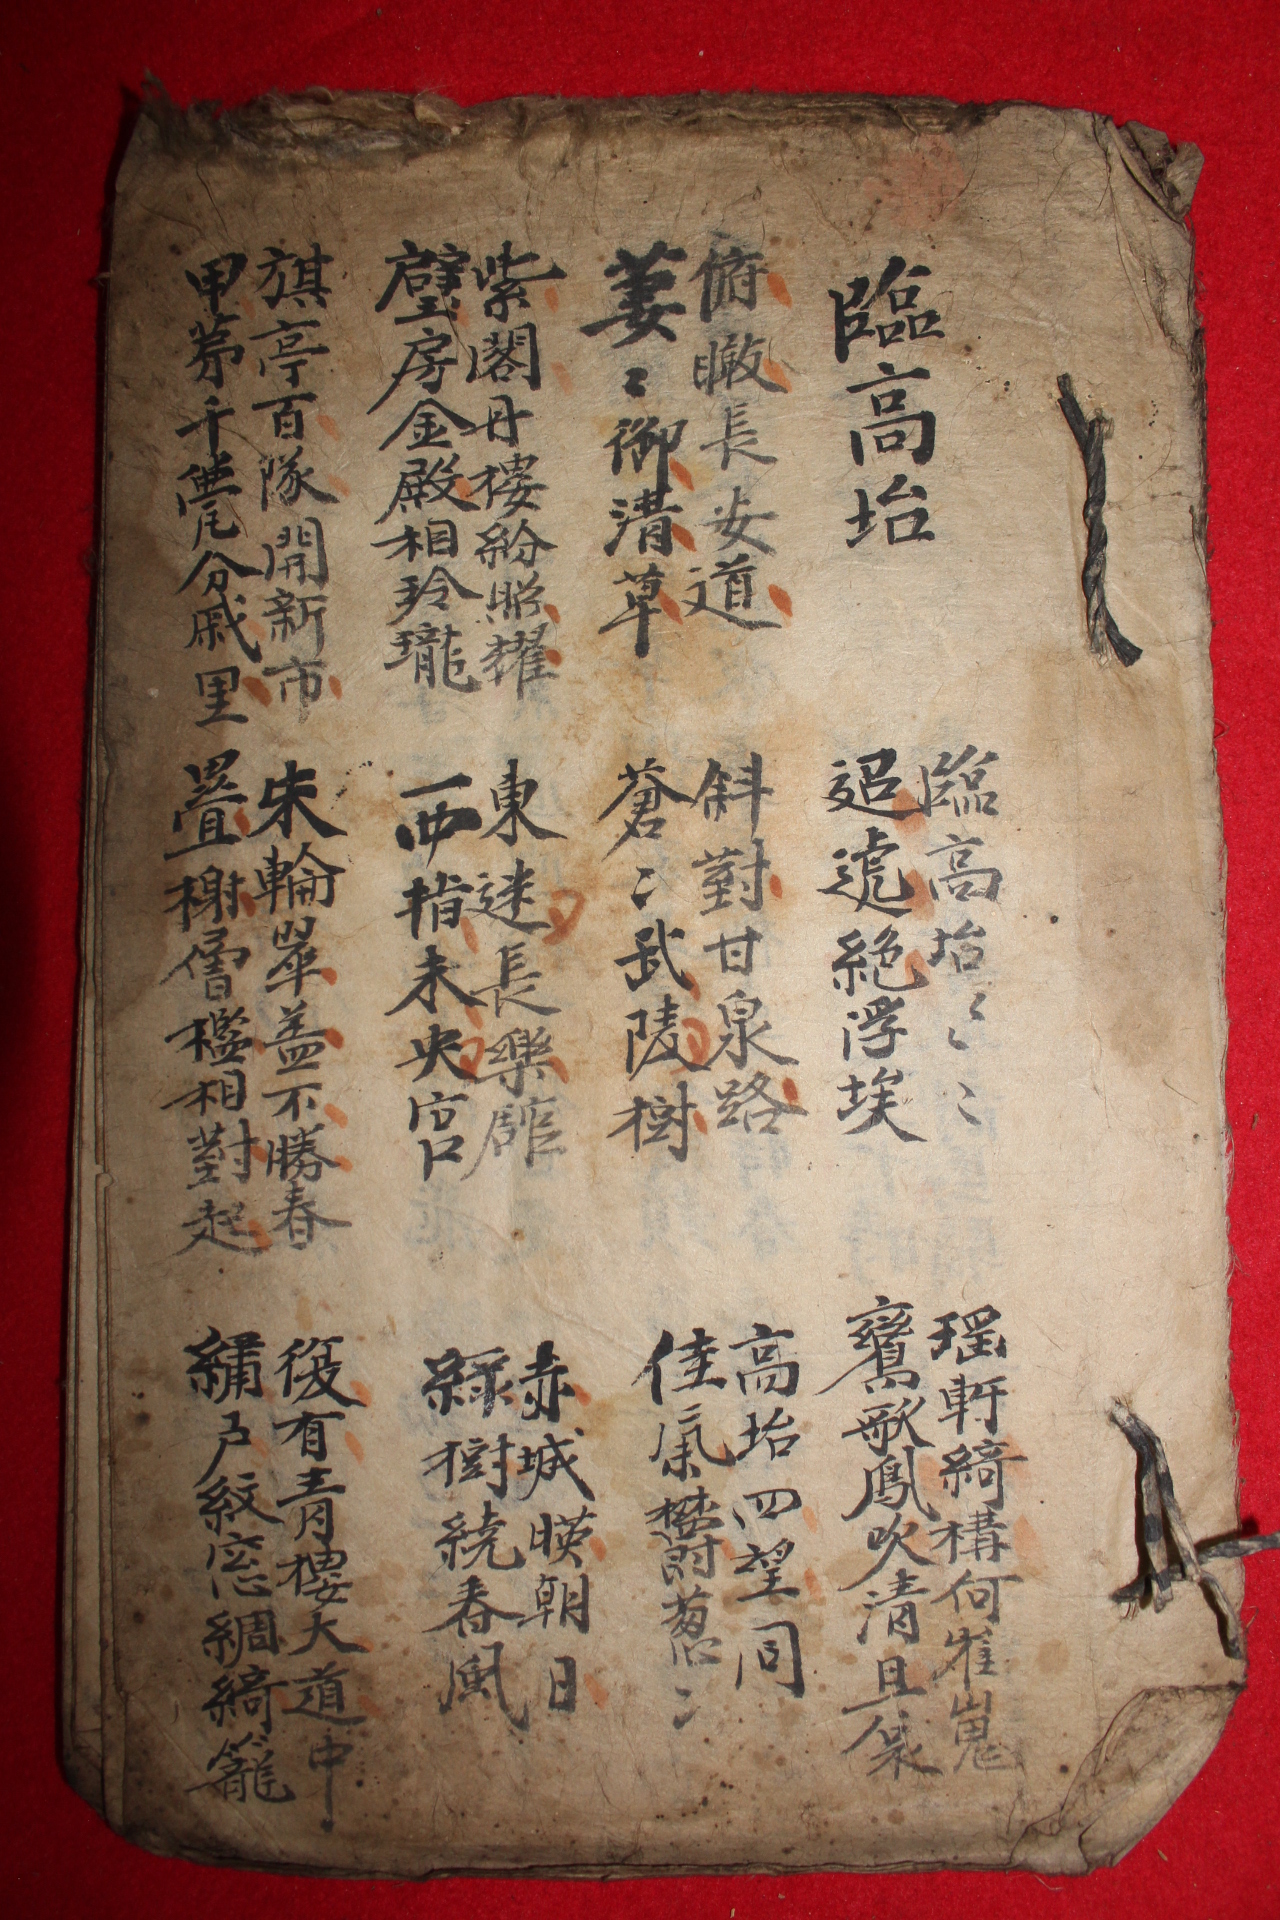 臨高坮
臨高坮〻〻〻
迢遞絶浮埃
瑤軒綺構何崔嵬
鸞歌鳳吹清且哀
俯瞰長安道
萋〻御溝草
斜對甘泉路
蒼〻武陵樹
高坮四望同
佳氣欝葱〻
紫閣丹樓紛照耀
璧房金殿相玲瓏
東迷長樂館
西指未央宮
赤城暎朝日
綠樹繞春風
旗亭百隊開新市
甲苐千甍分戚里
朱輪翠盖不勝春
疊榭層楹相對起
復有青樓大道中
繡戶紋窓綢綺籠